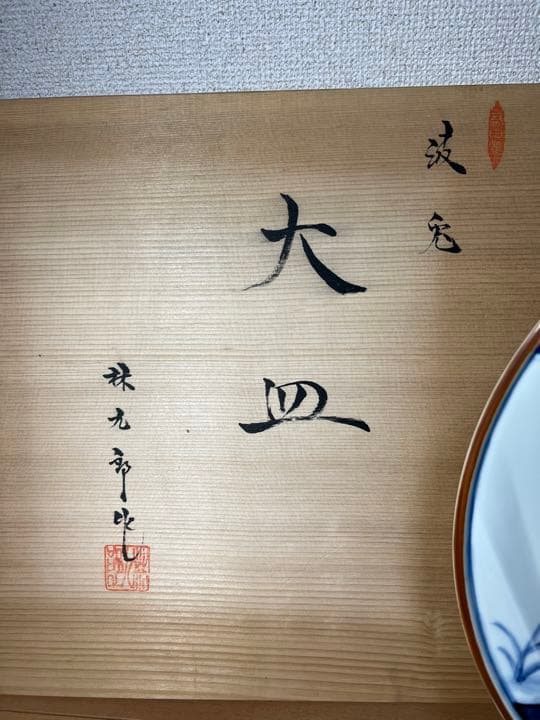 波兎
大皿
林九郎作